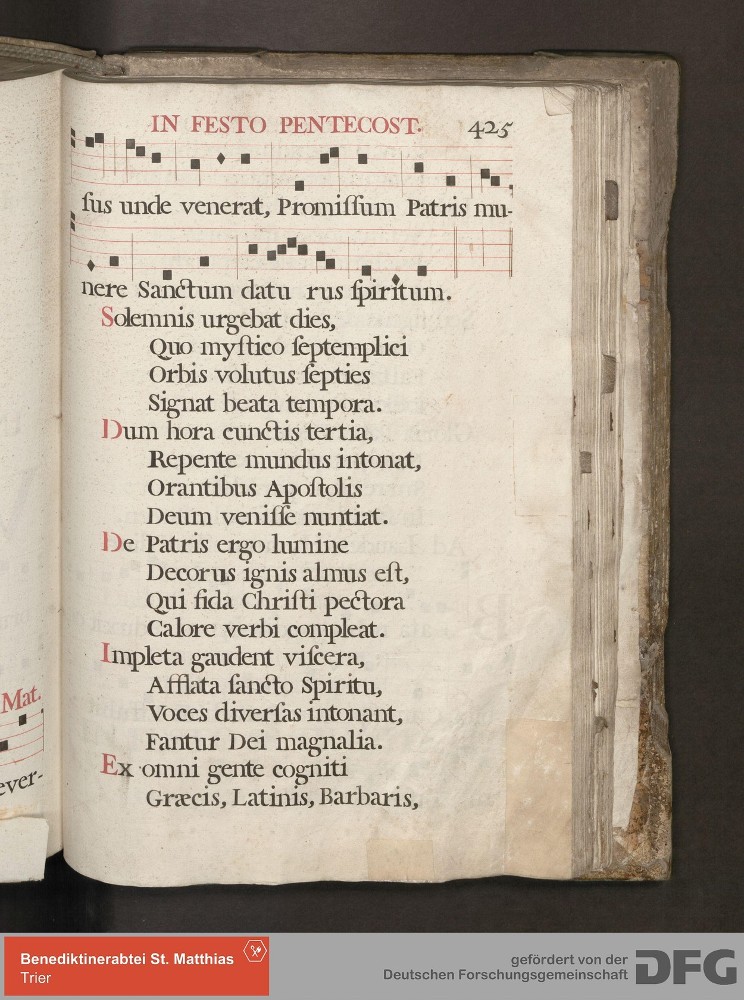 Mat.
ever-
IN FESTO PENTECOST.
425
ſus unde venerat, Promiſſum Patris mu-
nere Sanctum datu rus ſpiritum.
Solemnis urgebat dies,
Quo myſtico ſeptemplici
Orbis volutus ſepties
Signat beata tempora.
Dum hora cunctis tertia,
Repente mundus intonat,
Orantibus Apoſtolis
Deum veniſſe nuntiat.
De Patris ergo lumine
Decorus ignis almus eſt,
Qui fida Chriſti pectora
Calore verbi compleat.
Impleta gaudent viſcera,
Afflata ſancto Spiritu,
Voces diverſas intonant,
Fantur Dei magnalia.
Ex omni gente cogniti
Græcis, Latinis, Barbaris,
Benediktinerabtei St. Matthias
Trier
gefördert von der
Deutschen Forschungsgemeinschaft
DFG